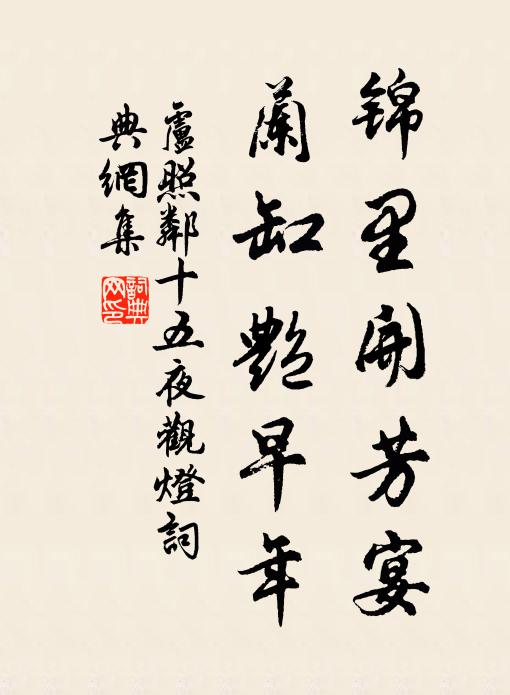 锦里开芳宴
蘭缸艷早年
盧照鄰十五夜觀燈詞
典網集
詞典网印